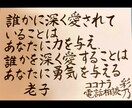 誰かに深く愛されて
いることは
あなたに力を与え、
誰かを深く愛することは
あなたに勇気を与える
老子
ココナラ
電話相談
彩